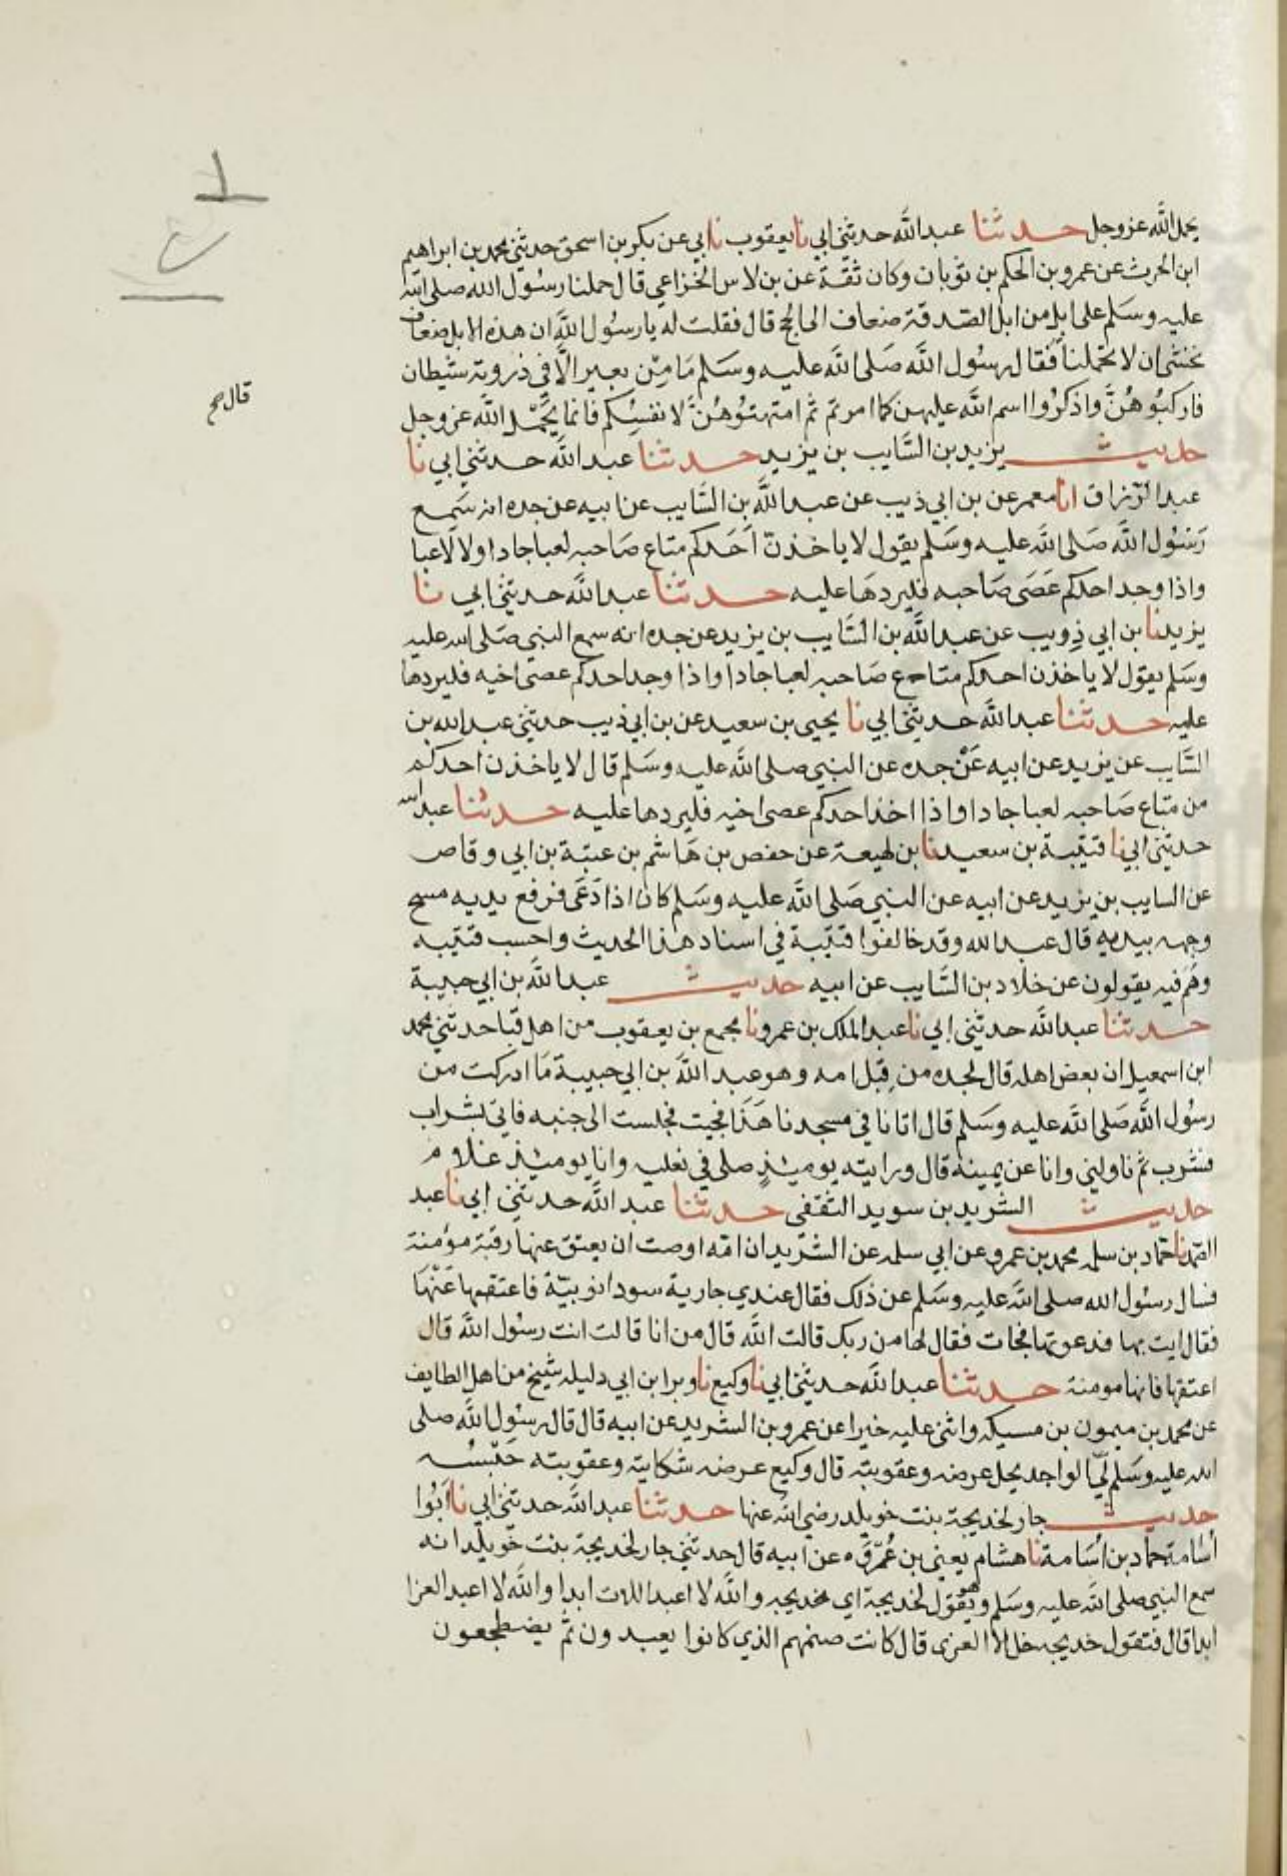 يحمل الله عز وجل حدثنا عبد الله حدثني ابي نا يعقوب نا ابي عن بكر بن اسحق حدثني محمد بن ابراهيم
ابن الحرث عن عمرو بن الحكم بن ثوبان وكان ثقة عن بن لاس الخزاعي قال حملنا رسول الله صلى الله
عليه وسلم على ابل من ابل الصدقة ضعاف الى الحج قال فقلت له يا رسول الله ان هذه الابل ضعاف
نخشى ان لا تحملنا فقال رسول الله صلى الله عليه وسلم ما من بعير الا في ذروته شيطان
فاركبوهن واذكروا اسم الله عليهن كما امرتم ثم امتهنوهن لانفسكم فانما يحمل الله عز وجل
قال صح
حديث يزيد بن السايب بن يزيد حدثنا عبد الله حدثني ابي نا
عبد الرزاق انا معمر عن بن ابي ذيب عن عبد الله بن السايب عن ابيه عن جده انه سمع
رسول الله صلى الله عليه وسلم يقول لا ياخذن احدكم متاع صاحبه لعبا جادا ولا لاعبا
واذا وجد احدكم عصى صاحبه فليردها عليه حدثنا عبد الله حدثني ابي نا
يزيد نا بن ابي ذويب عن عبد الله بن السايب بن يزيد عن جده انه سمع النبي صلى الله عليه
وسلم يقول لا ياخذن احدكم متاع صاحبه لعبا جادا واذا وجد احدكم عصى اخيه فليردها
عليه حدثنا عبد الله حدثني ابي نا يحيى بن سعيد عن بن ابي ذيب حدثني عبد الله بن
السايب عن يزيد عن ابيه عن جده عن النبي صلى الله عليه وسلم قال لا ياخذن احدكم
من متاع صاحبه لعبا جادا واذا اخذ احدكم عصى اخيه فليردها عليه حدثنا عبد الله
حدثني ابي نا قتيبة بن سعيد نا بن لهيعة عن حفص بن هاشم بن عتبة بن ابي وقاص
عن السايب بن يزيد عن ابيه عن النبي صلى الله عليه وسلم كان اذا دعى فرفع يديه مسح
وجهه بيديه قال عبد الله وقد خالفوا قتيبة في اسناد هذا الحديث واحسب قتيبه
وهم فيه يقولون عن خلاد بن السايب عن ابيه حديث عبد الله بن ابي حبيبة
حدثنا عبد الله حدثني ابي نا عبد الملك بن عمرو نا مجمع بن يعقوب من اهل قبا حدثني محمد
ابن اسمعيل ان بعض اهله قال لجده من قبل امه وهو عبد الله بن ابي حبيبة ما ادركت من
رسول الله صلى الله عليه وسلم قال اتانا في مسجدنا هذا فجيت فجلست الى جنبه فاتي بشراب
فشرب ثم ناولني وانا عن يمينه قال ورايته يوميذ صلى في نعليه وانا يوميذ غلام
حديث الشريد بن سويد الثقفي حدثنا عبد الله حدثني ابي نا عبد
الصمد نا حماد بن سلمه محمد بن عمرو عن ابي سلمه عن الشريد ان امه اوصت ان يعتق عنها رقبة مؤمنة
فسال رسول الله صلى الله عليه وسلم عن ذلك فقال عندي جارية سودا نوبية فاعتقها عنها
فقال ايت بها فدعوتها فجات فقال لها من ربك قالت الله قال من انا قالت انت رسول الله قال
اعتقها فانها مومنة حدثنا عبد الله حدثني ابي نا وكيع نا وبر ابن ابي دليله شيخ من اهل الطايف
عن محمد بن ميمون بن مسيكه واثنى عليه خيرا عن عمرو بن الشريد عن ابيه قال قال رسول الله صلى
الله عليه وسلم لي الواجد يحل عرضه وعقوبته قال وكيع عرضه شكايته وعقوبته حبسه
حديث جار لخديجة بنت خويلد رضي الله عنها حدثنا عبد الله حدثني ابي نا ابوا
اسامة حماد بن اسامة نا هشام يعني بن عروة عن ابيه قال حدثني جار لخديجة بنت خويلد انه
سمع النبي صلى الله عليه وسلم وهو يقول لخديجة اي خديجه والله لا اعبد اللات ابدا والله لا اعبد العزا
ابدا قال فتقول خديجه خل العزى قال كانت صنمهم الذي كانوا يعبدون ثم يضطجعون